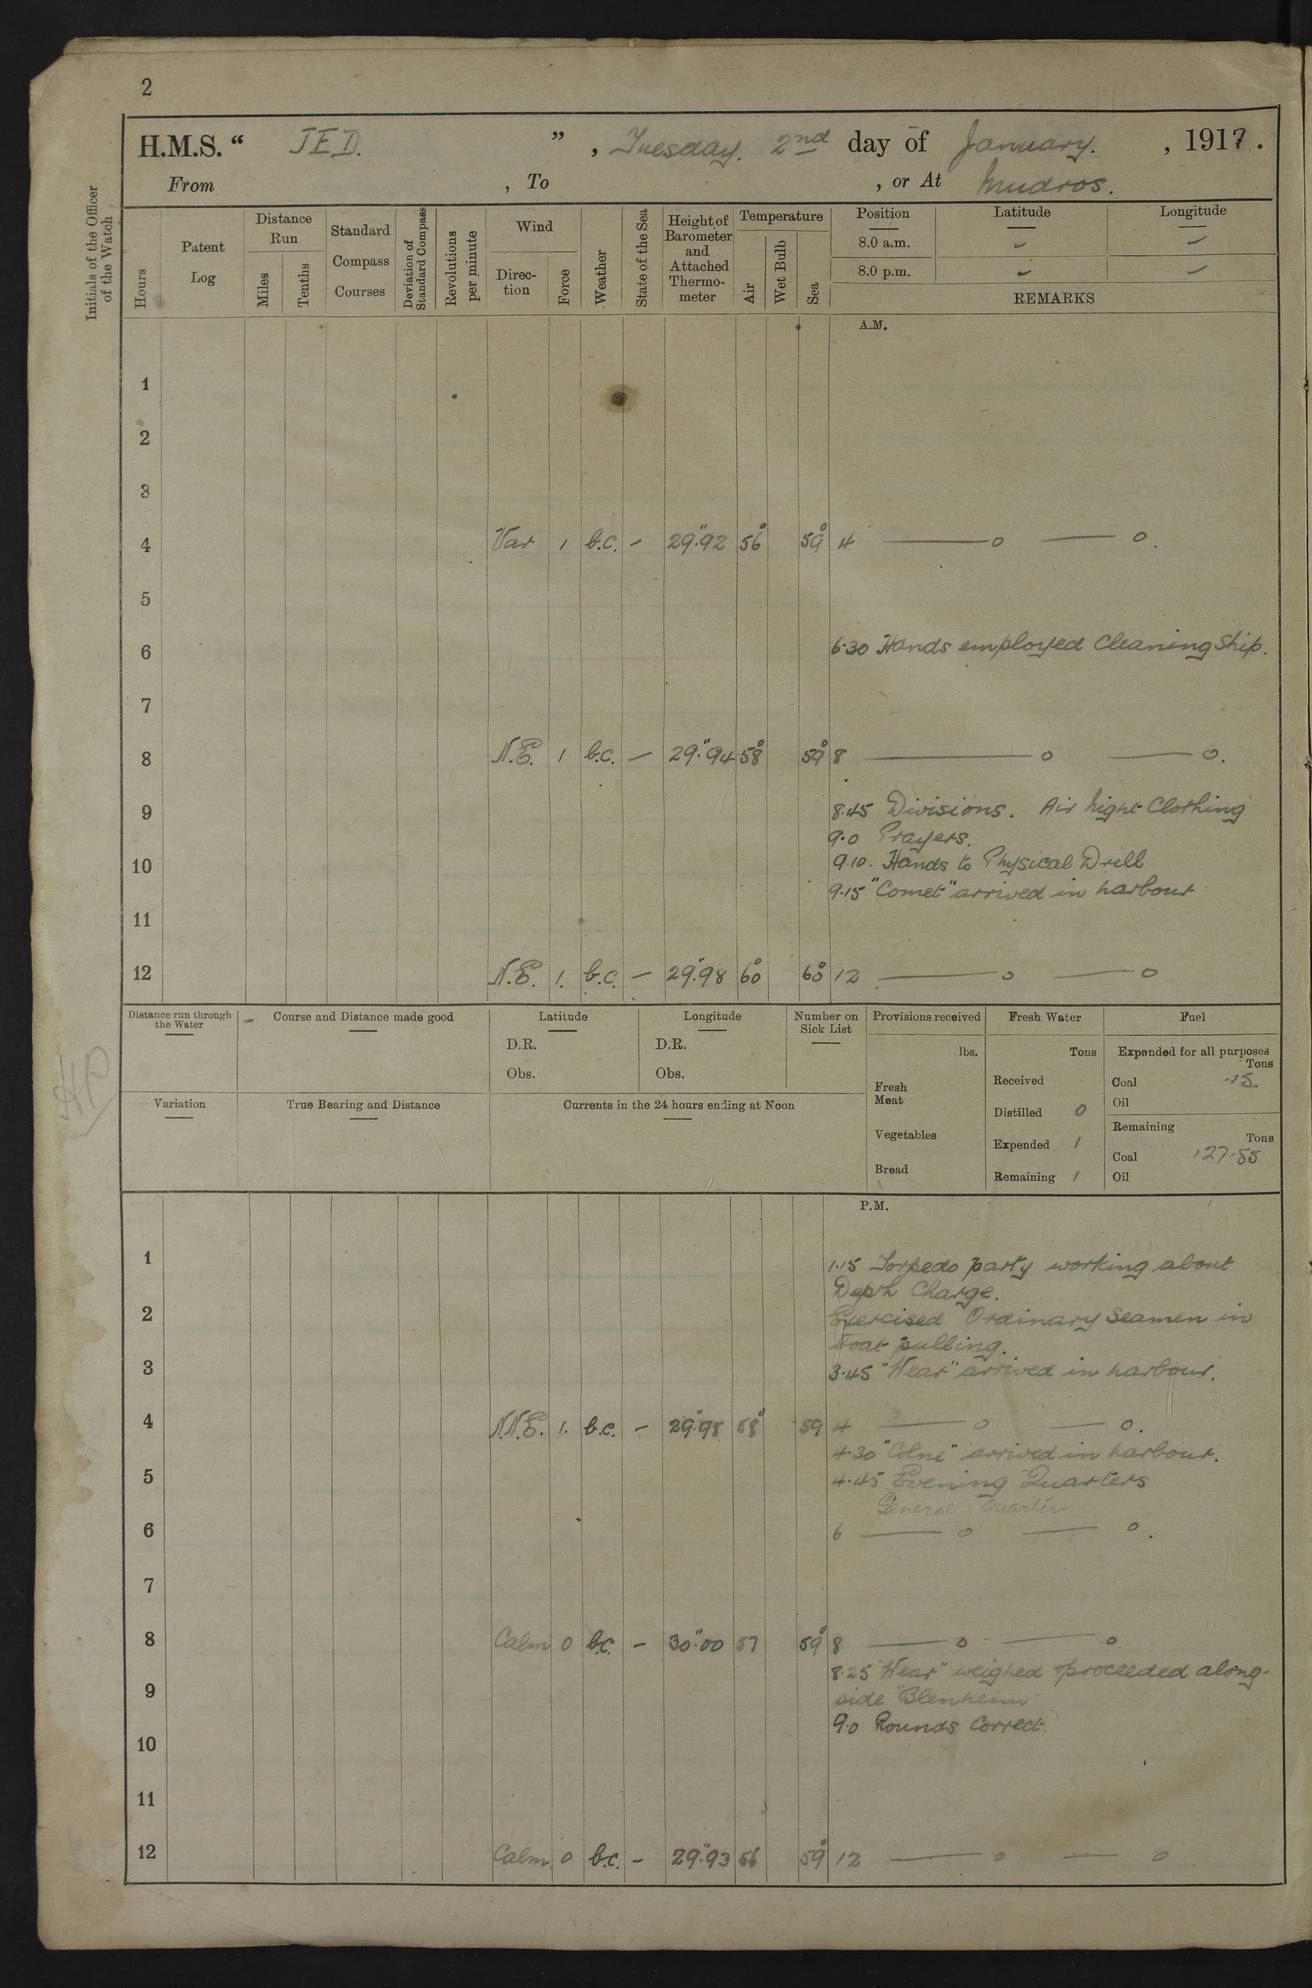 2
H.M.S. " JED. " , Tuesday. 2nd day of January. , 1917.
From , To , or At Mudros.
Initials of the Officer of the Watch
Hours
Patent Log
Distance Run
Miles
Tenths
Standard Compass Courses
Deviation of Standard Compass
Revolutions per minute
Wind
Direc-tion
Force
Weather
State of the Sea
Height of Barometer and Attached Thermo-meter
Temperature
Air
Wet Bulb
Sea
Position Latitude Longitude
8.0 a.m. ✓ ✓
8.0 p.m. ✓ ✓
REMARKS
A.M.
1
2
3
4 Var 1 b.c. – 29".92 56° 59° 4 —— o —— o.
5
6 6.30 Hands employed Cleaning Ship.
7
8 N.E. 1 b.c. – 29".94 58° 59° 8 —— o —— o.
9 8.45 Divisions. Air Night Clothing
9.0 Prayers.
10 9.10. Hands to Physical Drill
9.15 "Comet" arrived in harbour
11
12 N.E. 1. b.c. – 29".98 60° 60° 12 —— o —— o
Distance run through the Water
Course and Distance made good
Latitude
D.R.
Obs.
Longitude
D.R.
Obs.
Number on Sick List
Provisions received
lbs.
Fresh Meat
Vegetables
Bread
Fresh Water
Tons
Received
Distilled 0
Expended 1
Remaining 1
Fuel
Expended for all purposes
Tons
Coal .15.
Oil
Remaining
Tons
Coal 127.55
Oil
Variation
True Bearing and Distance
Currents in the 24 hours ending at Noon
P.M.
1 1.15 Torpedo party working about
Depth Charge.
2 Exercised Ordinary Seamen in
boat pulling.
3 3.45 "Wear" arrived in harbour.
4 N.N.E. 1. b.c. – 29".98 58° 59 4 —— o —— o.
4.30 "Colne" arrived in harbour.
5 4.45 Evening Quarters
General Quarters
6 6 —— o —— o.
7
8 Calm 0 b.c. – 30".00 57 59° 8 —— o —— o
8.25 "Wear" weighed proceeded along-
9 side "Blenheim"
9.0 Rounds Correct.
10
11
12 Calm 0 b.c. – 29".93 56 59° 12 —— o —— o